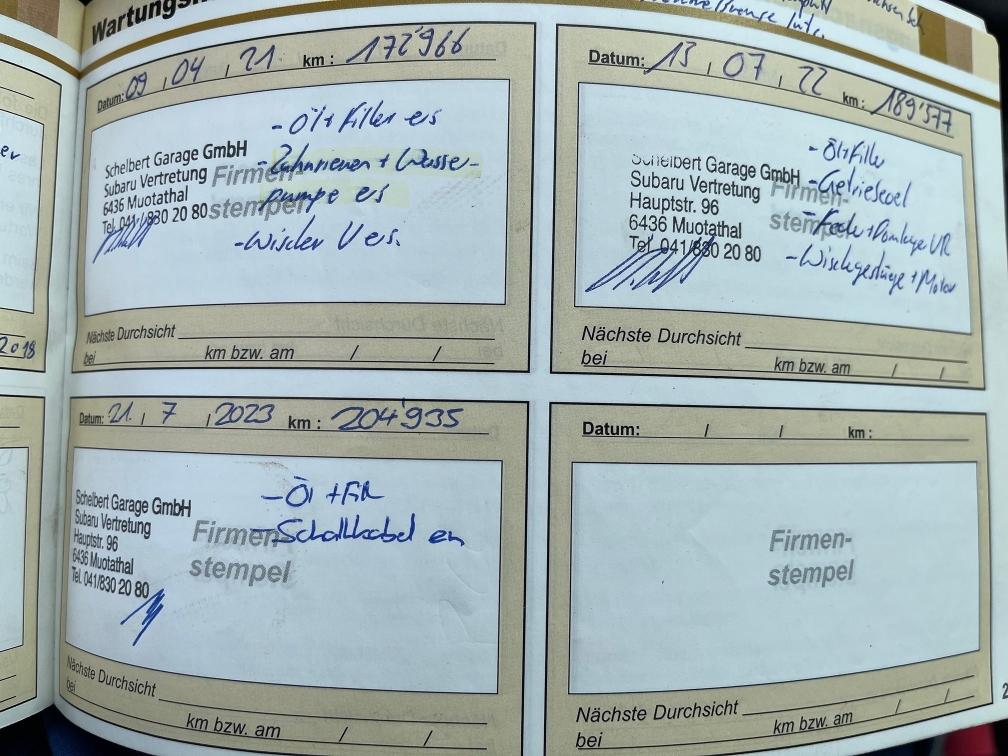 Wartungsn
Datum: 09 , 04 , 21. km : 172'966
Schelbert Garage GmbH
Subaru Vertretung
6436 Muotathal
Tel. 041/830 20 80
Firmen-
stempel
- Öl + Filter ers
- Zahnriemen + Wasser-
pumpe ers
- Wischer V ers.
Nächste Durchsicht
bei km bzw. am / /
Datum: 13 , 07 , 22 km : 189'577
Schelbert Garage GmbH
Subaru Vertretung
Hauptstr. 96
6436 Muotathal
Tel. 041/830 20 80
Firmen-
stempel
- Öl + Filter
- Getriebeoel
- Feder + Domlager VR
- Wischgestänge + Motor
Nächste Durchsicht
bei km bzw. am / /
2018
Datum: 21 / 7 / 2023 km : 204'935
Schelbert Garage GmbH
Subaru Vertretung
Hauptstr. 96
6436 Muotathal
Tel. 041/830 20 80
Firmen-
stempel
- Öl + Filt
- Schaltkabel ern
Nächste Durchsicht
bei km bzw. am / /
Datum: / / km :
Firmen-
stempel
Nächste Durchsicht
bei km bzw. am / /
2